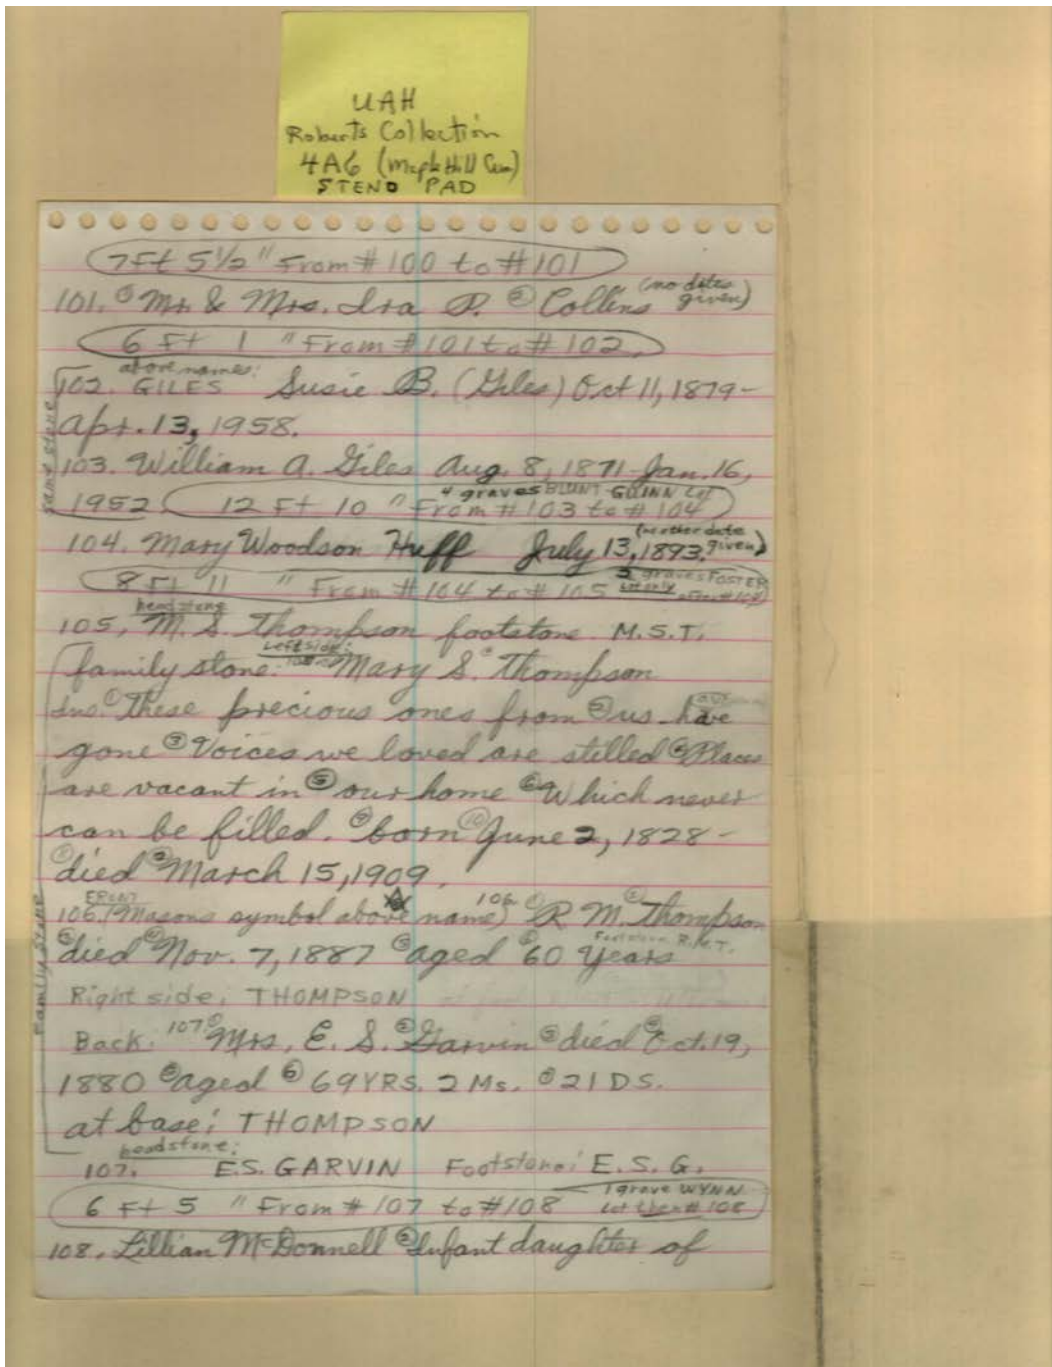 UAH
Roberts Collection
4A6 (Maple Hill Cem)
STENO PAD
7 Ft 5 1/2 " From # 100 to # 101
101. ① Mr. & Mrs. Ira P. ② Collins (no dates given)
6 Ft 1 " From # 101 to # 102.
above names:
102. GILES Susie B. (Giles) Oct 11, 1879-
Apr. 13, 1958.
same stone
103. William A. Giles Aug. 8, 1871-Jan. 16,
4 graves BLUNT-QUINN Lot
1952 12 Ft 10 " From # 103 to # 104
104. Mary Woodson Huff July 13, 1893. (no other date given)
8 Ft 11 " From # 104 to # 105 graves FOSTER
headstone
105. M. S. Thompson footstone M.S.T.
Left side:
family stone: Mary S. Thompson
Ins. ① These precious ones from ② us have
gone ③ Voices we loved are stilled ④ Places
are vacant in ⑤ our home ⑥ Which never
can be filled. ⑨ born ⑩ June 2, 1828-
① died ② March 15, 1909.
FRONT
106. (Masons symbol above name) 106. ① R. M. ② Thompson
Footstone R.M.T.
③ died ④ Nov. 7, 1887 ⑤ aged ⑥ 60 years
Right side: THOMPSON
Family Stone
Back: 107 ① Mrs. E. S. ② Garvin ③ died ④ Oct. 19,
1880 ⑤ aged ⑥ 69 YRS. 2 Ms. ⑦ 21 DS.
at base: THOMPSON
headstone:
107. E.S. GARVIN Footstone: E. S. G.
1 grave WYNN
6 Ft 5 " From # 107 to # 108 Lot then # 108
108. Lillian McDonnell ② Infant daughter of